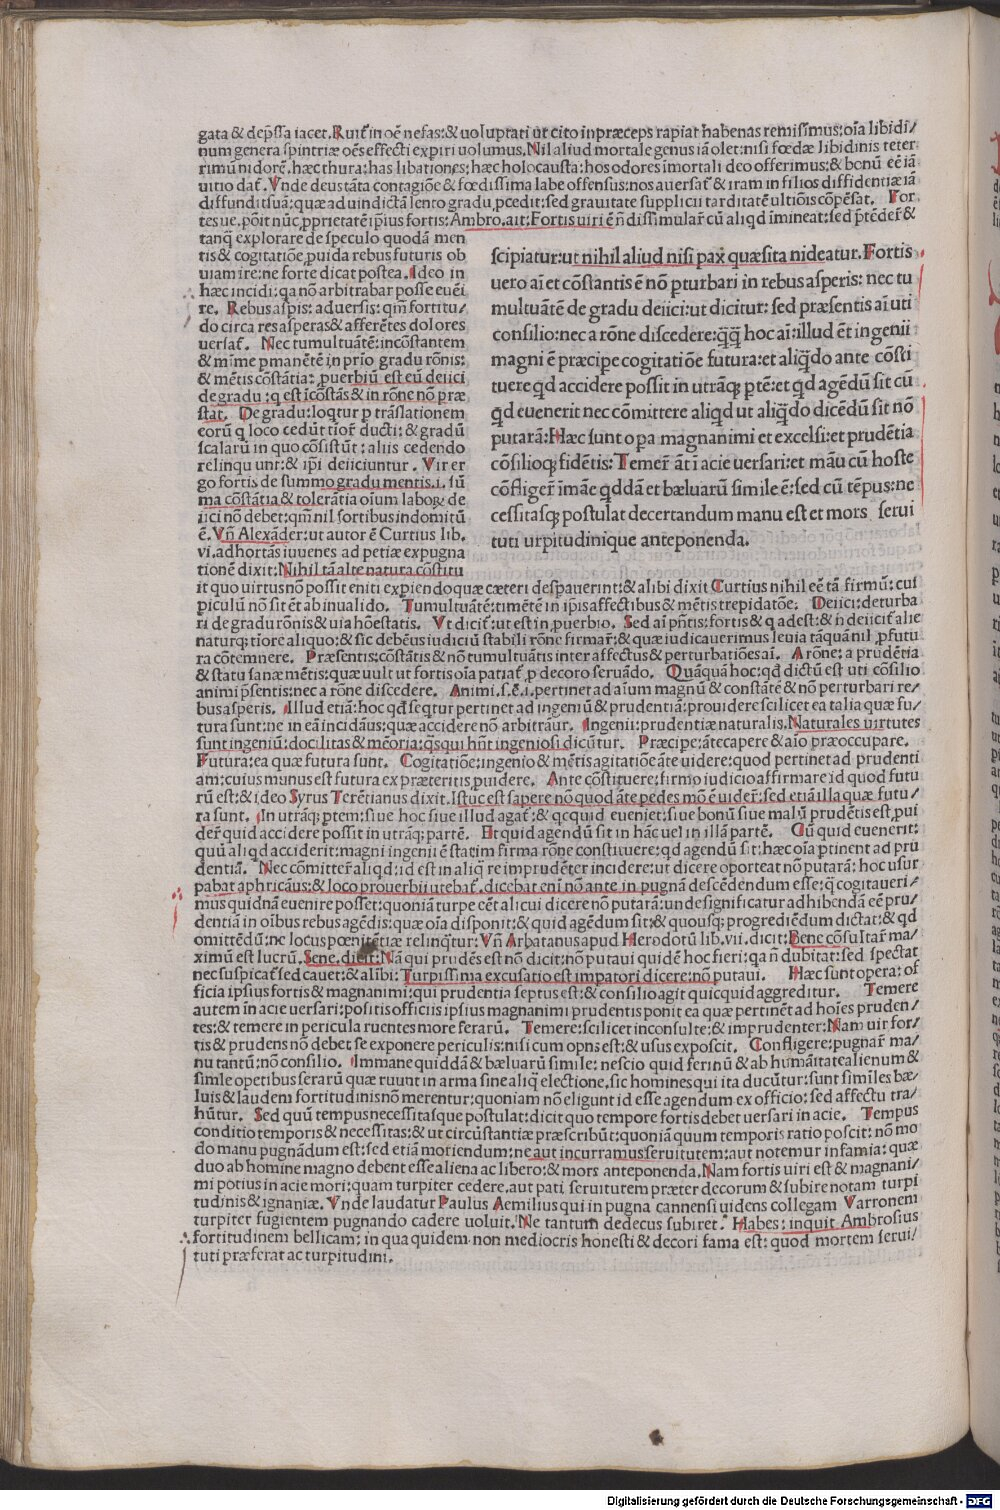 gata & dep̃ssa iacet. Ruit̃ in oẽ nefas: & uoluptati ut cito in præceps rapiat habenas remissimus: oĩa libidi/
num genera spintriæ oẽs effecti expiri uolumus. Nil aliud mortale genus iã olet: nisi fœdæ libidinis teter
rimũ nidorẽ. hæc thura: has libationes: hæc holocausta: hos odores ĩmortali deo offerimus: & bonũ eẽ iã
uitio dat̃. Vnde deus tãta contagiõe & fœdissima labe offensus: nos auersat̃ & iram in filios diffidentiæ iã
diffundit suã: quæ ad uindictã lento gradu ꝓcedit: sed grauitate supplicii tarditatẽ ultiõis cõpẽsat. For
tes ue. põit nũc ꝓprietatẽ ip̃ius fortis: Ambro. ait: Fortis uiri eñ dissimular̃ cũ aliqd ĩmineat: sed p̃tẽder̃ &
tanq̃ explorare de speculo quodã men
tis & cogitatiõe ꝓuida rebus futuris ob
uiam ire: ne forte dicat postea. Ideo in
hæc incidi: qa nõ arbitrabar posse euẽi
re. Rebus asp̃is: aduersis: qm̃ fortitu/
do circa res asperas & afferẽtes dolores
uersat̃. Nec tumultuãtẽ: incõstantem
& mĩme pmanẽtẽ in prĩo gradu rõnis:
& mẽtis cõstãtia: ꝓuerbiũ est eũ deiici
de gradu: q est ĩcõstãs & in rõne nõ præ
stat. De gradu: loqtur p trãslationem
eorũ q loco cedũt tior̃ ducti: & gradũ
scalarũ in quo cõsistũt: aliis cedendo
relinqu unt: & ip̃i deiiciuntur. Vir er
go fortis de summo gradu mentis. i. sũ
ma cõstãtia & tolerãtia oĩum labor̃ de
iici nõ debet: qm̃ nil fortibus indomitũ
ẽ. Vñ Alexãder: ut autor ẽ Curtius lib.
vi. adhortãs iuuenes ad petiæ expugna
tionẽ dixit: Nihil tã alte natura cõstitu
scipiatur: ut nihil aliud nisi pax quæsita uideatur. Fortis
uero aĩ et cõstantis ẽ nõ pturbari in rebus asperis: nec tu
multuãtẽ de gradu deiici: ut dicitur: sed præsentis aĩ uti
consilio: nec a rõne discedere: q̃q̃ hoc aĩ: illud ẽt ingenii
magni ẽ præcipe cogitatiõe futura: et aliq̃do ante cõsti
tuere qd accidere possit in utrãq; ptẽ: et qd agẽdũ sit cũ
qd euenerit nec cõmittere aliqd ut aliq̃do dicẽdũ sit nõ
putarã: Hæc sunt o pa magnanimi et excelsi: et prudẽtia
cõsilioq; fidẽtis: Temer̃ ãt ĩ acie uersari: et mãu cũ hoste
cõfliger̃ ĩmãe qddã et bæluarũ simile ẽ: sed cũ tẽpus: ne
cessitasq; postulat decertandum manu est et mors serui
tuti urpitudinique anteponenda.
it quo uirtus nõ possit eniti expiendo quæ cæteri despauerint: & alibi dixit Curtius nihil eẽ tã firmũ: cui
piculũ nõ sit ẽt ab inualido. Tumultuãtẽ: timẽtẽ in ip̃is affectibus & mẽtis trepidatõe. Deiici: deturba
ri de gradu rõnis & uia hõestatis. Vt dicit̃: ut est in ꝓuerbio. Sed aĩ p̃ntis: fortis & q adest: & ñ deiicit̃ alie
naturq; tiore aliquo: & sic debẽus iudiciũ stabili rõne firmar̃: & quæ iudicauerimus leuia tãquã nil ꝓfutu
ra cõtemnere. Præsentis: cõstãtis & nõ tumultuãtis inter affectus & perturbatiões aĩ. A rõne: a prudẽtia
& statu sanæ mẽtis: quæ uult ut fortis oĩa patiat̃ ꝓ decoro seruãdo. Quãquã hoc: qd dictũ est uti cõsilio
animi p̃sentis: nec a rõne discedere. Animi. s. ẽ. i. pertinet ad aĩum magnũ & constãtẽ & nõ perturbari re/
bus asperis. Illud etiã: hoc qd seqtur pertinet ad ingeniũ & prudentiã: prouidere scilicet ea talia quæ fu/
tura sunt: ne in eã incidãus: quæ accidere nõ arbitrãur. Ingenii: prudentiæ naturalis. Naturales uirtutes
sunt ingeniũ: docilitas & mẽoria: q̃s qui hñt ingeniosi dicũtur. Præcipe: ãtecapere & aĩo præoccupare.
Futura: ea quæ futura sunt. Cogitatiõe: ingenio & mẽtis agitatiõe ãte uidere: quod pertinet ad prudenti
am: cuius munus est futura ex præteritis ꝓuidere. Ante cõstituere: firmo iudicio affirmare id quod futu
rũ est: & ideo Syrus Terẽtianus dixit. Istuc est sapere nõ quod ãte pedes mõ ẽ uider̃: sed etiã illa quæ futu/
ra sunt. In utrãq; ptem: siue hoc siue illud agat̃: & qcquid eueniet: siue bonũ siue malũ prudẽtis est ꝓui
der̃ quid accidere possit in utrãq; partẽ. Et quid agendũ sit in hãc uel in illã partẽ. Cũ quid euenerit:
quũ aliqd acciderit: magni ingenii ẽ statim firma rõne constituere: qd agendũ sit: hæc oĩa ptinent ad pru
dentiã. Nec cõmitter̃ aliqd: id est in aliq̃ re imprudẽter incidere: ut dicere oporteat nõ putarã: hoc usur
pabat aphricãus: & loco prouerbii utebat̃. dicebat enĩ nõ ante in pugnã descẽdendum esse: q̃ cogitaueri/
mus quidnã euenire posset: quoniã turpe cẽt alicui dicere nõ putarã: unde significatur adhibendã eẽ pru/
dentiã in oĩbus rebus agẽdis: quæ oĩa disponit: & quid agẽdum sit: & quousq; progrediẽdum dictat: & qd
omittẽdũ: ne locus pœnitẽtiæ relinqtur: Vñ Arbatanus apud Herodotũ lib. vii. dicit: Bene cõsultar̃ ma/
ximũ est lucrũ. Sene. dicit: Nã qui prudẽs est nõ dicit: nõ putaui quidẽ hoc fieri: qa ñ dubitat: sed spectat
nec suspicat̃ sed cauet: & alibi: Turpissima excusatio est impatori dicere: nõ putaui. Hæc sunt opera: of
ficia ipsius fortis & magnanimi: qui prudentia septus est: & consilio agit quicquid aggreditur. Temere
autem in acie uersari: positis officiis ipsius magnanimi prudentis ponit ea quæ pertinẽt ad hoĩes pruden/
tes: & temere in pericula ruentes more ferarũ. Temere: scilicet inconsulte: & imprudenter: Nam uir for/
tis & prudens nõ debet se exponere periculis: nisi cum opns est: & usus exposcit. Confligere: pugnar̃ ma/
nu tantũ: nõ consilio. Immane quiddã & bæluarũ simile: nescio quid ferinũ & ab humãitate alienum &
simile opetibus ferarũ quæ ruunt in arma sine aliq̃ electione, sic homines qui ita ducũtur: sunt simĩles bæ/
luis & laudem fortitudinis nõ merentur: quoniam nõ eligunt id esse agendum ex officio: sed affectu tra/
hũtur. Sed quũ tempus necessitasque postulat: dicit quo tempore fortis debet uersari in acie. Tempus
conditio temporis & necessitas: & ut circũstantiæ præscribũt: quoniã quum temporis ratio poscit: nõ mo
do manu pugnãdum est: sed etiã moriendum: ne aut incurramus seruitutem: aut notemur infamia: quæ
duo ab homine magno debent esse aliena ac libero: & mors anteponenda. Nam fortis uiri est & magnani/
mi potius in acie mori: quam turpiter cedere. aut pati seruitutem præter decorum & subire notam turpi
tudinis & ignaniæ. Vnde laudatur Paulus Aemilius qui in pugna cannensi uidens collegam Varronem
turpiter fugientem pugnando cadere uoluit. Ne tantum dedecus subiret. Habes: inquit Ambrosius
fortitudinem bellicam: in qua quidem non mediocris honesti & decori fama est: quod mortem serui/
tuti præferat ac turpitudini.
Digitalisierung gefördert durch die Deutsche Forschungsgemeinschaft - DFG